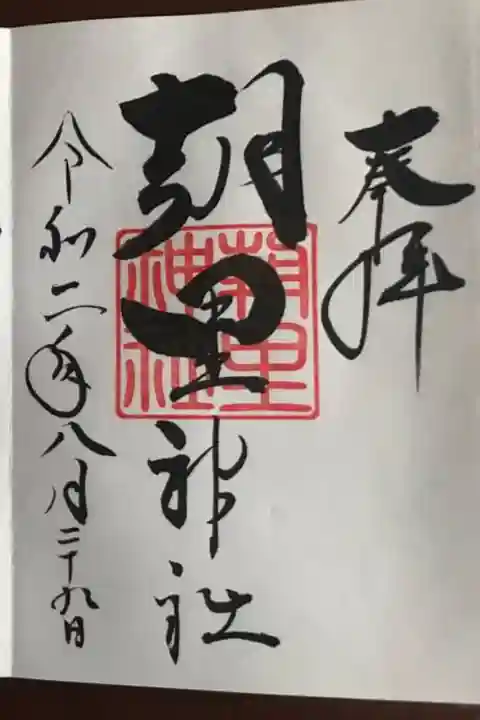 奉拝
朝里神社
朝里神社
令和二年八月二十九日